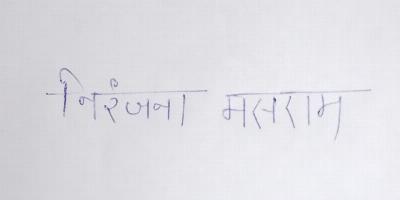 निरंजना मसराम